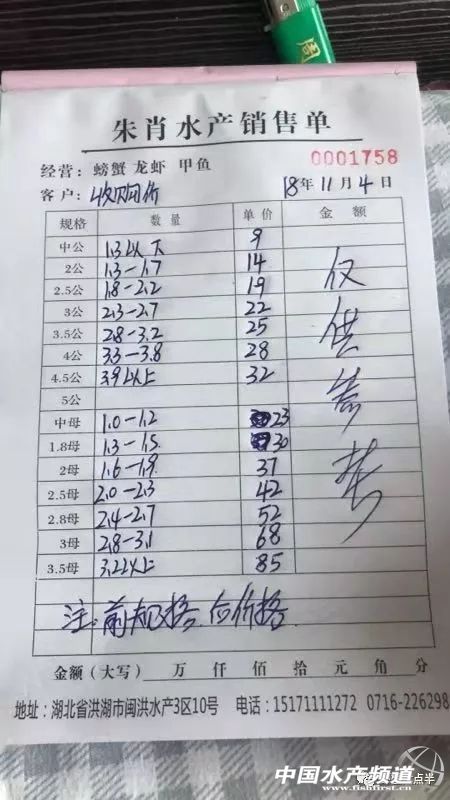 周
朱肖水产销售单
经营：螃蟹 龙虾 甲鱼 0001758
客户：收购价 18年11月4日
规格 数量 单价 金额
中公 1.3以下 9
2公 1.3-1.7 14
2.5公 1.8-2.2 19
3公 2.3-2.7 22
3.5公 2.8-3.2 25
4公 3.3-3.8 28
4.5公 3.9以上 32
5公
中母 1.0-1.2 23
1.8母 1.3-1.5 30
2母 1.6-1.9 37
2.5母 2.0-2.3 42
2.8母 2.4-2.7 52
3母 2.8-3.1 68
3.5母 3.2以上 85
仅供参考
注：前规格 后价格
金额（大写） 万 仟 佰 拾 元 角 分
地址：湖北省洪湖市闽洪水产3区10号 电话：15171111272 0716-226298
中国水产频道
www.fishfirst.cn
点半